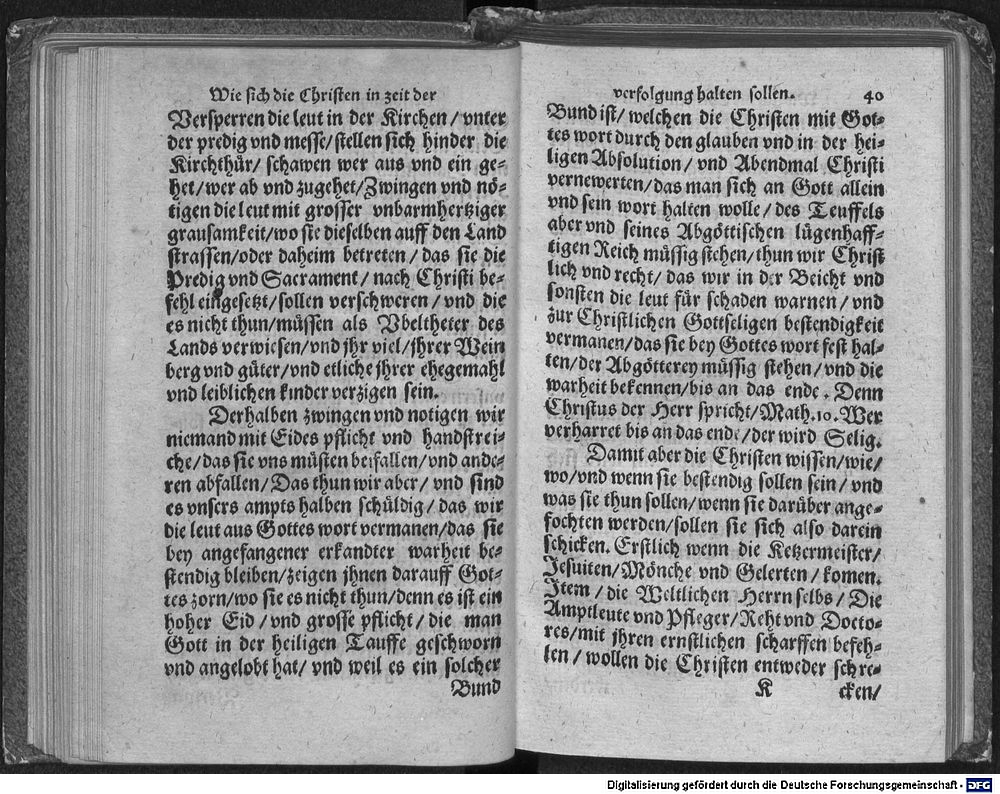 Wie sich die Christen in zeit der
Versperren die leut in der Kirchen/ vnter
der predig vnd messe/ stellen sich hinder die
Kirchthür/ schawen wer aus vnd ein ge-
het/ wer ab vnd zugehet/ Zwingen vnd nö-
tigen die leut mit grosser vnbarmhertziger
grausamkeit/ wo sie dieselben auff den Land
strassen/ oder daheim betreten/ das sie die
Predig vnd Sacrament/ nach Christi be-
fehl eingesetzt/ sollen verschweren/ vnd die
es nicht thun/ müssen als Vbeltheter des
Lands verwiesen/ vnd jhr viel/ jhrer Wein
berg vnd güter/ vnd etliche jhrer ehegemahl
vnd leiblichen kinder verzigen sein.
Derhalben zwingen vnd notigen wir
niemand mit Eides pflicht vnd handstrei-
che/ das sie vns müsten beifallen/ vnd ande-
ren abfallen/ Das thun wir aber/ vnd sind
es vnsers ampts halben schüldig/ das wir
die leut aus Gottes wort vermanen/ das sie
bey angefangener erkandter warheit be-
stendig bleiben/ zeigen jhnen darauff Got-
tes zorn/ wo sie es nicht thun/ denn es ist ein
hoher Eid/ vnd grosse pflicht/ die man
Gott in der heiligen Tauffe geschworn
vnd angelobt hat/ vnd weil es ein solcher
Bund
verfolgung halten sollen. 40
Bund ist/ welchen die Christen mit Got-
tes wort durch den glauben vnd in der hei-
ligen Absolution/ vnd Abendmal Christi
vernewerten/ das man sich an Gott allein
vnd sein wort halten wolle/ des Teuffels
aber vnd seines Abgöttischen lügenhaff-
tigen Reich müssig stehen/ thun wir Christ
lich vnd recht/ das wir in der Beicht vnd
sonsten die leut für schaden warnen/ vnd
zur Christlichen Gottseligen bestendigkeit
vermanen/ das sie bey Gottes wort fest hal-
ten/ der Abgötterey müssig stehen/ vnd die
warheit bekennen/ bis an das ende. Denn
Christus der Herr spricht/ Math. 10. Wer
verharret bis an das ende/ der wird Selig.
Damit aber die Christen wissen/ wie/
wo/ vnd wenn sie bestendig sollen sein/ vnd
was sie thun sollen/ wenn sie darüber ange-
fochten werden/ sollen sie sich also darein
schicken. Erstlich wenn die Ketzermeister/
Jesuiten/ Mönche vnd Gelerten/ komen.
Item/ die Weltlichen Herrn selbs/ Die
Amptleute vnd Pfleger/ Reht vnd Docto-
res/ mit jhren ernstlichen scharffen befeh-
len/ wollen die Christen entweder schre-
K cken/
Digitalisierung gefördert durch die Deutsche Forschungsgemeinschaft - DFG